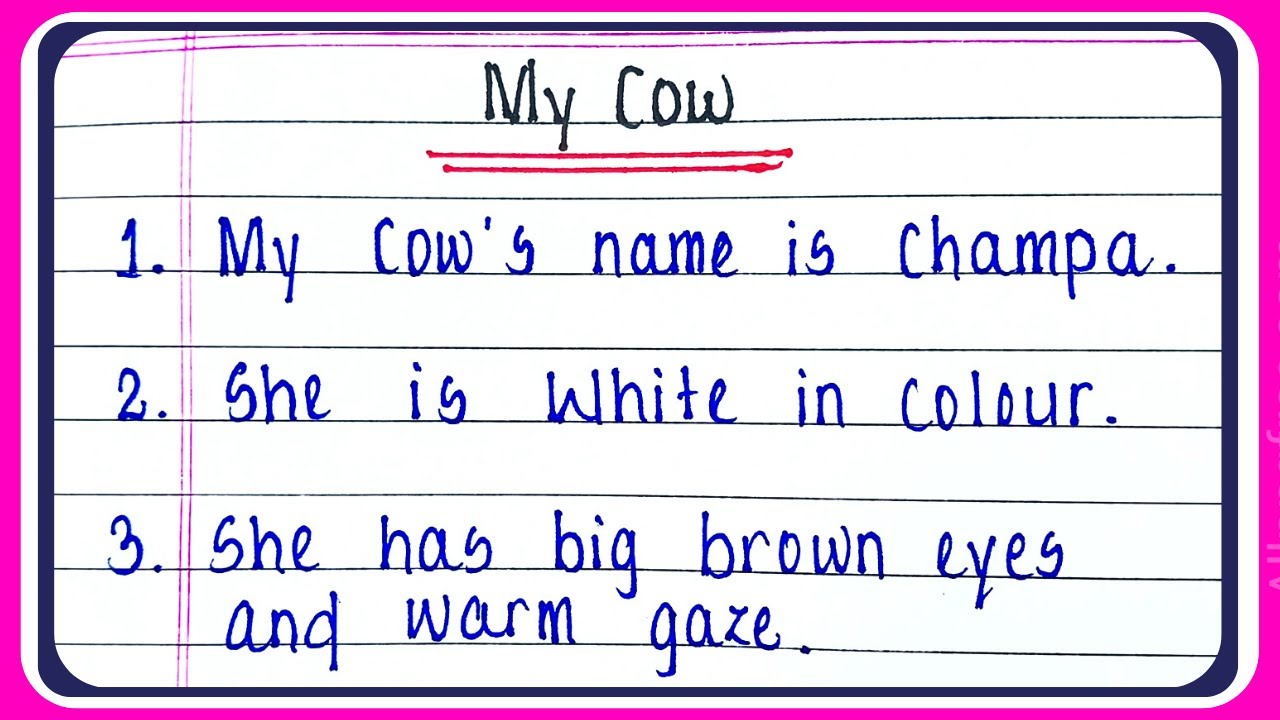 My Cow
1. My Cow's name is Champa.
2. She is White in Colour.
3. She has big brown eyes
and warm gaze.